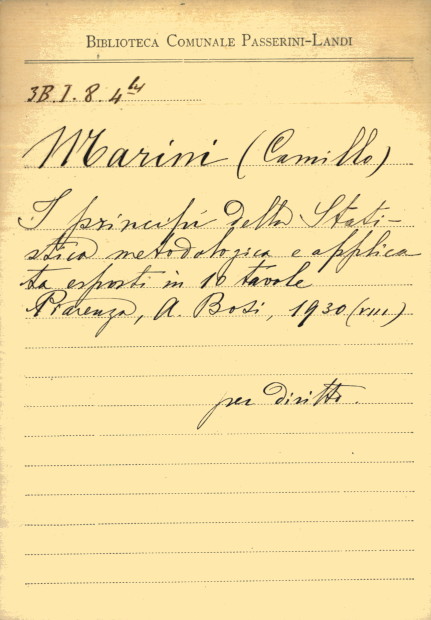 BIBLIOTECA COMUNALE PASSERINI-LANDI
3B.I.8.4
Marini (Camillo)
I principî della Stati-
stica metodologica e applica
ta esposti in 10 tavole
Piacenza, A. Bosi, 1930 (VIII)
per diritto.